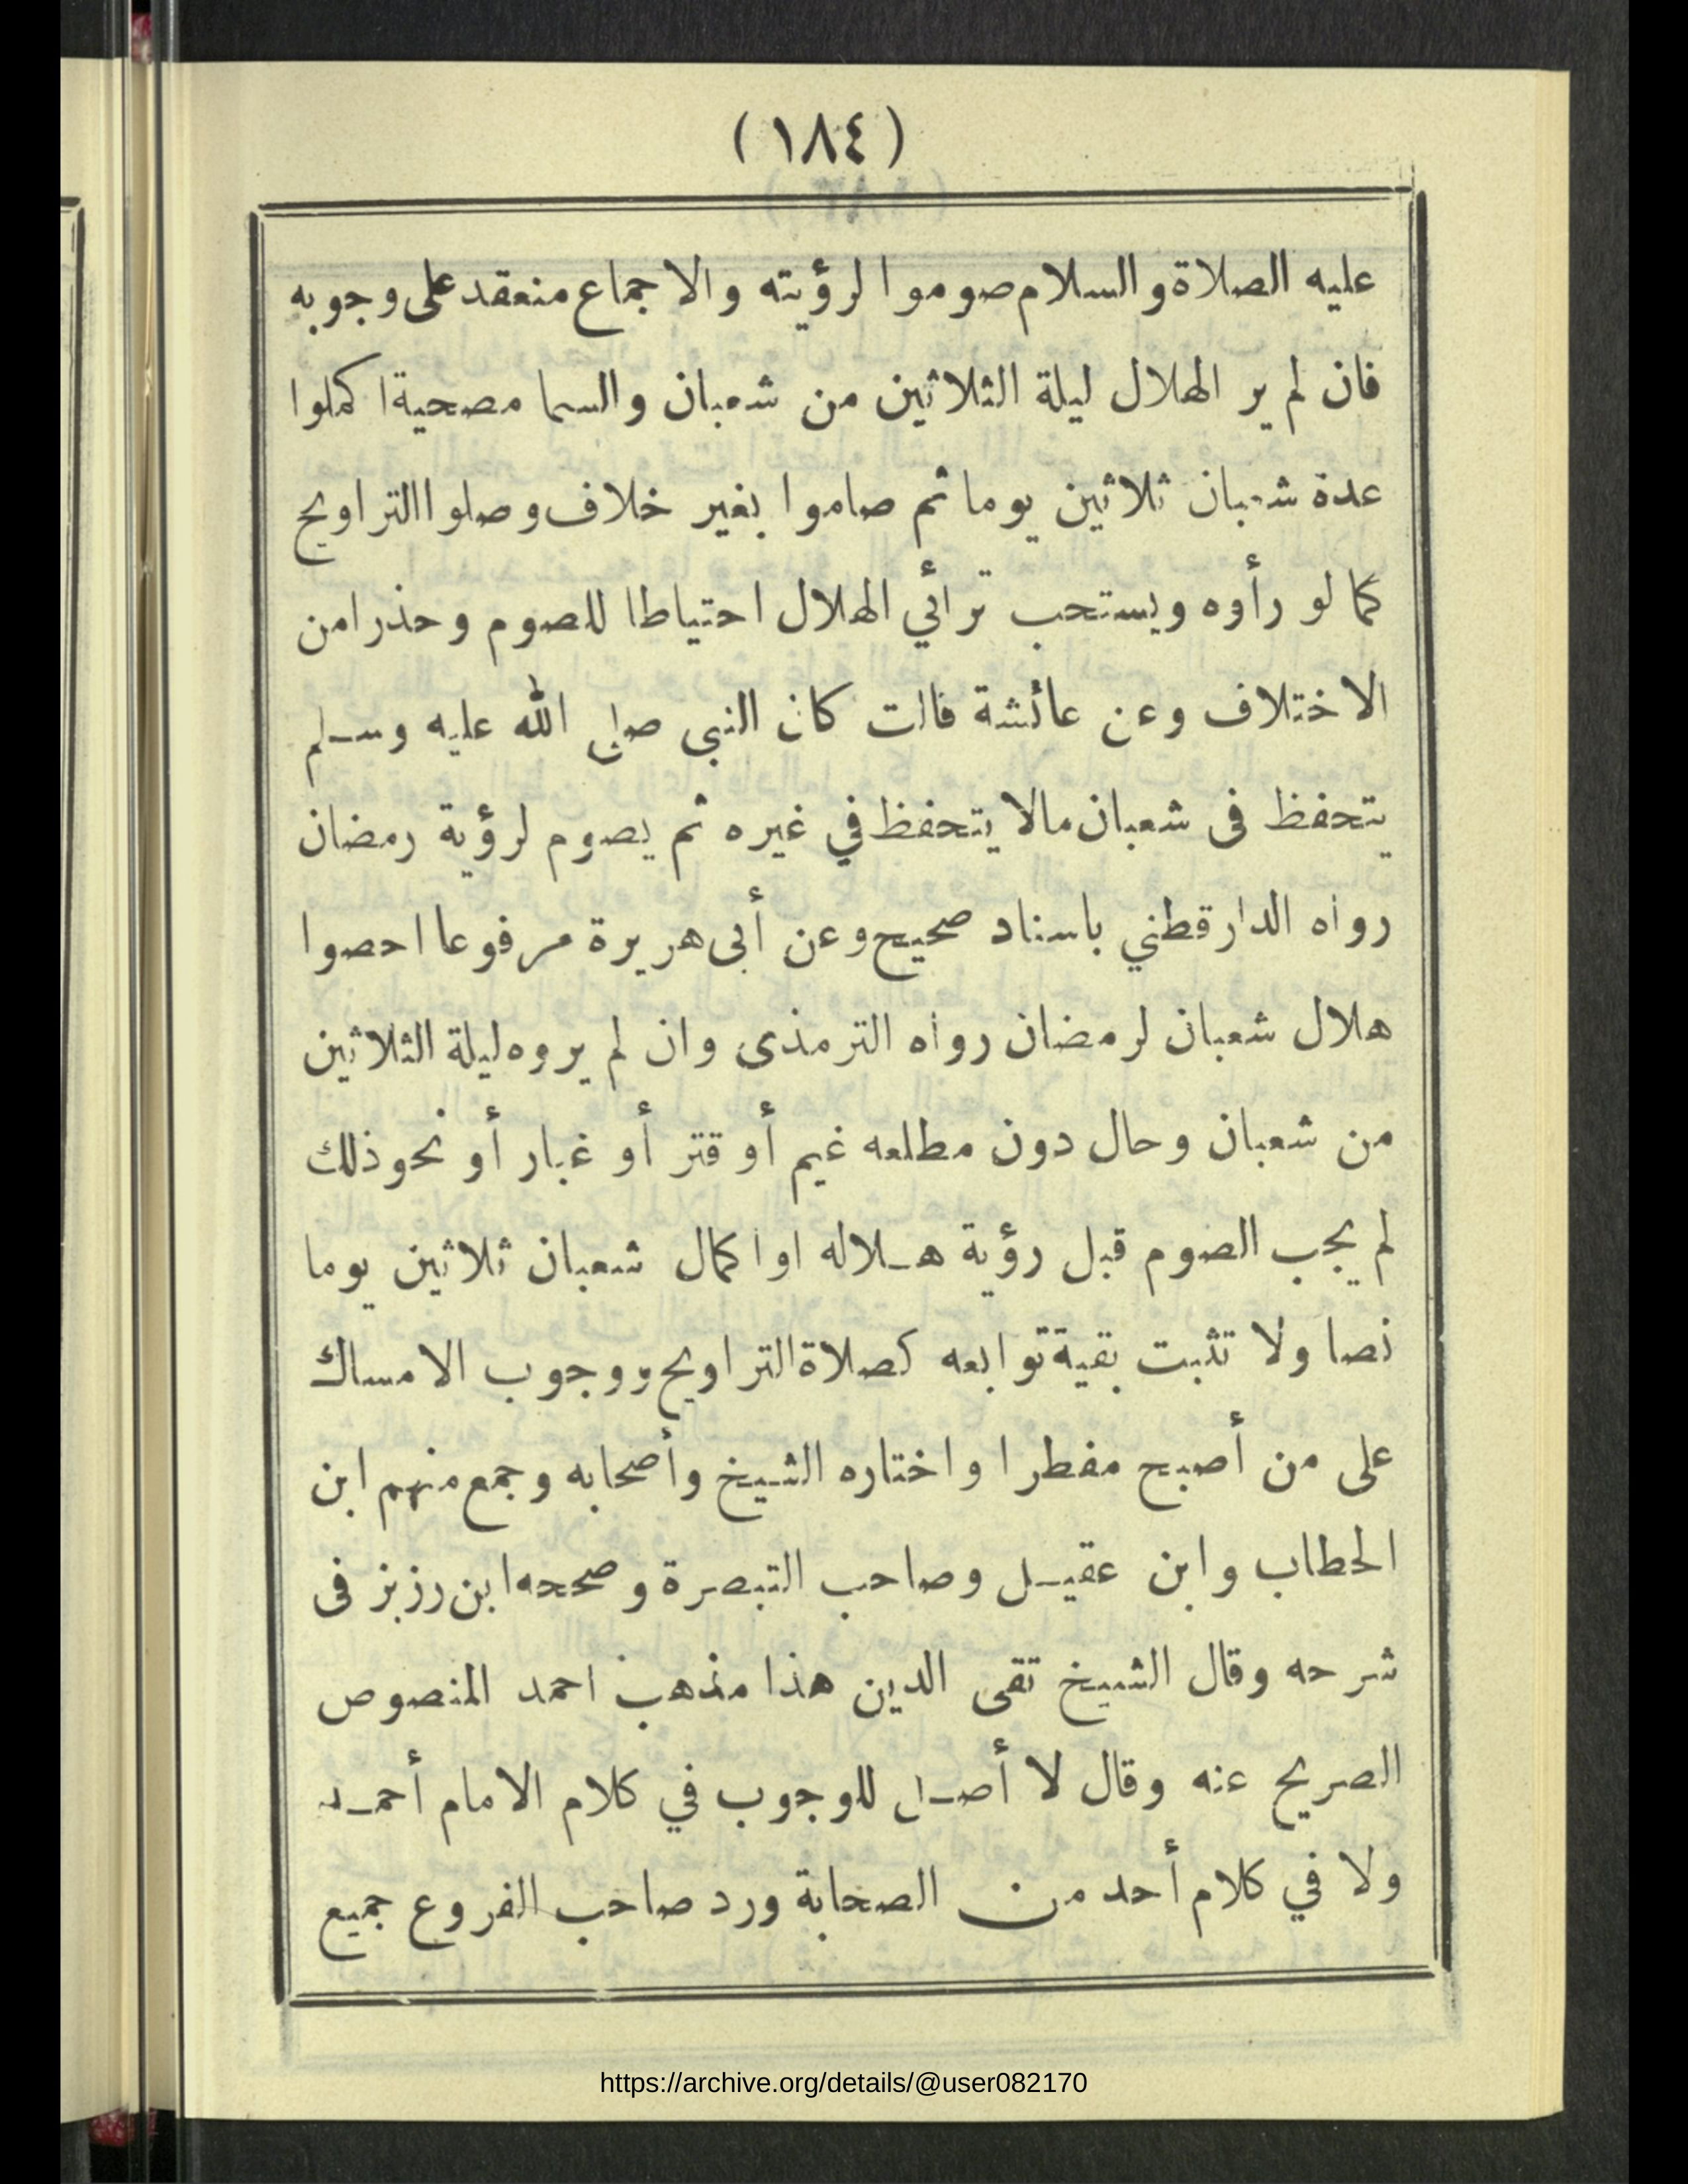 (١٨٤)
عليه الصلاة والسلام صوموا لرؤيته والاجماع منعقد على وجوبه
فان لم ير الهلال ليلة الثلاثين من شعبان والسما مصحية اكملوا
عدة شعبان ثلاثين يوما ثم صاموا بغير خلاف وصلوا التراويح
كما لو رأوه ويستحب ترأئي الهلال احتياطا للصوم وحذرا من
الاختلاف وعن عائشة قالت كان النبي صلى الله عليه وسلم
يتحفظ فى شعبان مالا يتحفظ في غيره ثم يصوم لرؤية رمضان
رواه الدارقطني باسناد صحيح وعن أبى هريرة مرفوعا احصوا
هلال شعبان لرمضان رواه الترمذى وان لم يروه ليلة الثلاثين
من شعبان وحال دون مطلعه غيم أو قتر أو غبار أو نحو ذلك
لم يجب الصوم قبل رؤية هلاله او اكمال شعبان ثلاثين يوما
نصا ولا تثبت بقية توابعه كصلاة التراويح ووجوب الامساك
على من أصبح مفطرا واختاره الشيخ وأصحابه وجمع منهم ابن
الخطاب وابن عقيل وصاحب التبصرة وصححه ابن رزبز فى
شرحه وقال الشيخ تقى الدين هذا مذهب احمد المنصوص
الصريح عنه وقال لا أصل للوجوب في كلام الامام أحمد
ولا في كلام أحد من الصحابة ورد صاحب الفروع جميع
https://archive.org/details/@user082170